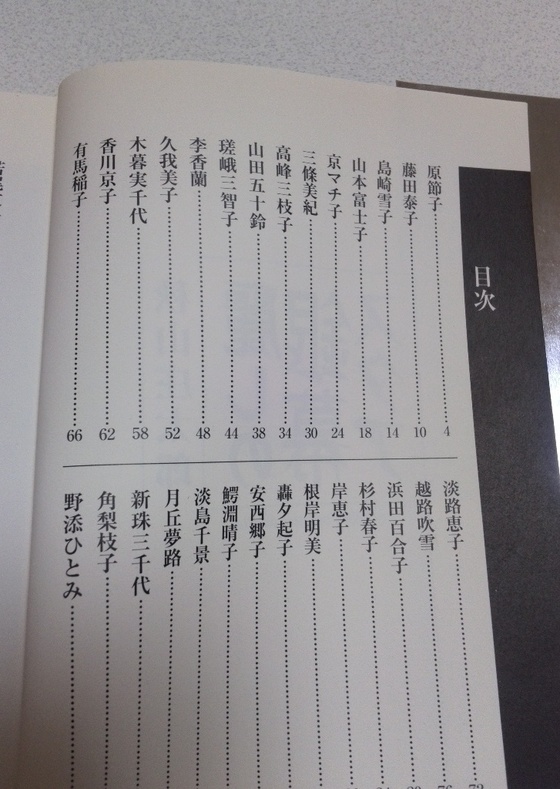 目次
原節子 4
藤田泰子 10
島崎雪子 14
山本富士子 18
京マチ子 24
三條美紀 30
高峰三枝子 34
山田五十鈴 38
瑳峨三智子 44
李香蘭 48
久我美子 52
木暮実千代 58
香川京子 62
有馬稲子 66
淡路恵子 72
越路吹雪 76
浜田百合子
杉村春子
岸恵子
根岸明美
轟夕起子
安西郷子
鰐淵晴子
淡島千景
月丘夢路
新珠三千代
角梨枝子
野添ひとみ